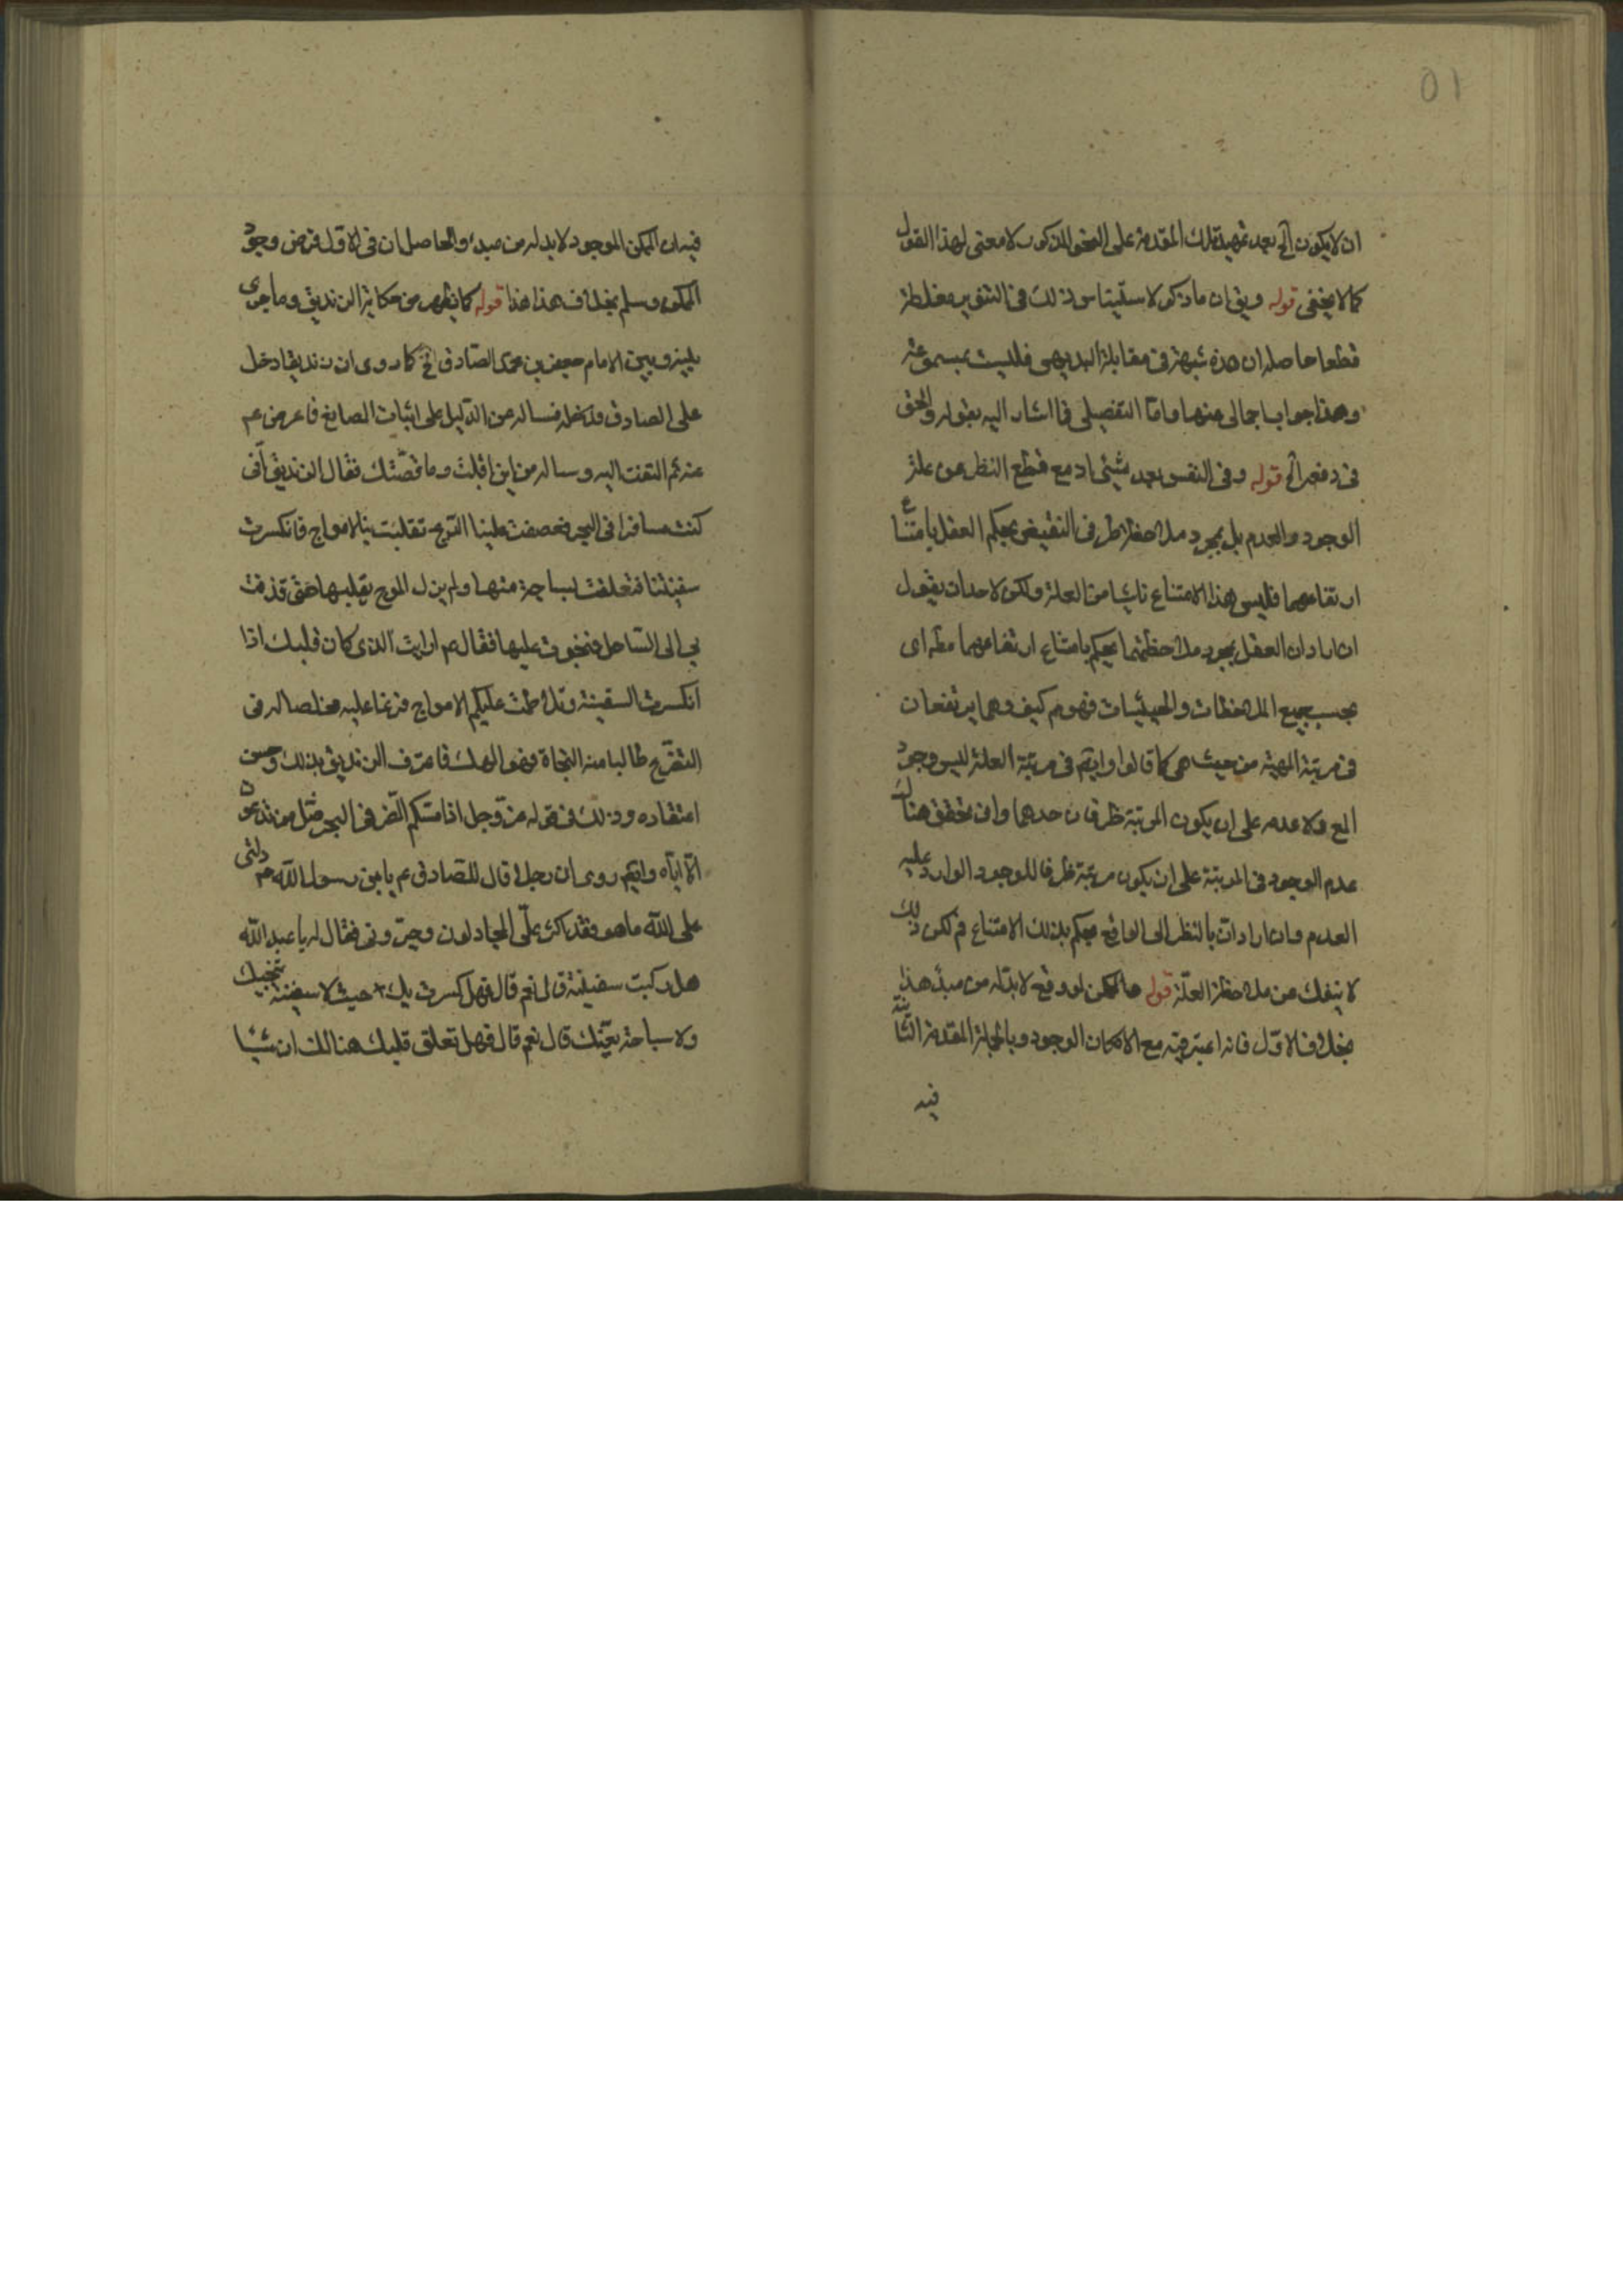 ان لا يكون الخ بعد تمهيد تلك المقدمة على النحو المذكور لا معنى لهذا القول
كما لا يخفى قوله ويق ان ما ذكر لاستيناس ذلك في التنوير مغلطة
قطعا حاصله ان هذه شبهة في مقابلة البديهى فليست بمسموعة
وهذا جواب اجمالى عنها واما التفصيلى فما اشار اليه بقوله والحق
فى دفعه الخ قوله وفى النفس بعد شيئى اد مع قطع النظر عن علة
الوجود والعدم بل بمجرد ملاحظة طرفى النقيض يحكم العقل بامتناع
ارتفاعهما فليس هذا الامتناع ناشيا من العلة ولكن لاحد ان يقول
ان اراد ان العقل بمجرد ملاحظتهما يحكم بامتناع ارتفاعهما مطه اى
بحسب جميع الملاحظات والحيثيات فهو مم كيف وهما يرتفعان
فى مرتبة المهية من حيث هى كما قالوا وايضم فى مرتبة العلة ليس وجود
المع ولا عدمه على ان يكون المرتبة ظرفا لاحدهما وان تحقق هناك
عدم الوجود فى المرتبة على ان يكون مرتبة ظرفا للوجود الوارد عليه
العدم وان اراد ان بالنظر الى الواقع يحكم بذلك الامتناع فم لكن ذلك
لا ينفك عن ملاحظة العلة قوله حالممكن لو وقع لا بد له من مبدء هذا
بخلاف الاول فانه اعتبر فيه مع الامكان الوجود وبالجملة المقدمة الثانية
فيه
فيه ان الممكن الموجود لا بد له من مبدء والحاصل ان فى الاول فرض وجود
الممكن وسلم بخلاف هذا هذا قوله كما يظهر من حكاية الزنديق وما جرى
بينه وبين الامام جعفر بن محمد الصادق الخ كما روى ان زنديقا دخل
على الصادق فساله عن الدليل على اثبات الصانع فاعرض عم
عنه ثم التفت اليه وساله من اين اقبلت وما قصتك فقال الزنديق انى
كنت مسافرا فى البحر فعصفت علينا الريح تقلبت بنا الامواج فانكسرت
سفينتنا فتعلقت بساجة منها ولم يزل الموج يقلبها حتى قذفت
بى الى الساحل فنجوت عليها فقال عم ارايت الذى كان قلبك اذا
انكسرت السفينة وتلاطمت عليكم الامواج فزعا عليه مخلصا له فى
التضرع طالبا منه النجاة فهو الهك فاعترف الزنديق بذلك وحسن
اعتقاده وذلك فى قوله عز وجل اذا مسكم الضر فى البحر ضل من تدعون
الا اياه وايضم روى ان رجلا قال للصادق عم يا ابن رسول الله ص دلنى
على الله ما هو فقد اكثر على المجادلون وحيرونى فقال له يا عبد الله
هل ركبت سفينة قال نعم قال فهل كسرت بك حيث لا سفينة تنجيك
ولا سباحة تغنيك قال نعم قال فهل تعلق قلبك هنالك ان شيئا